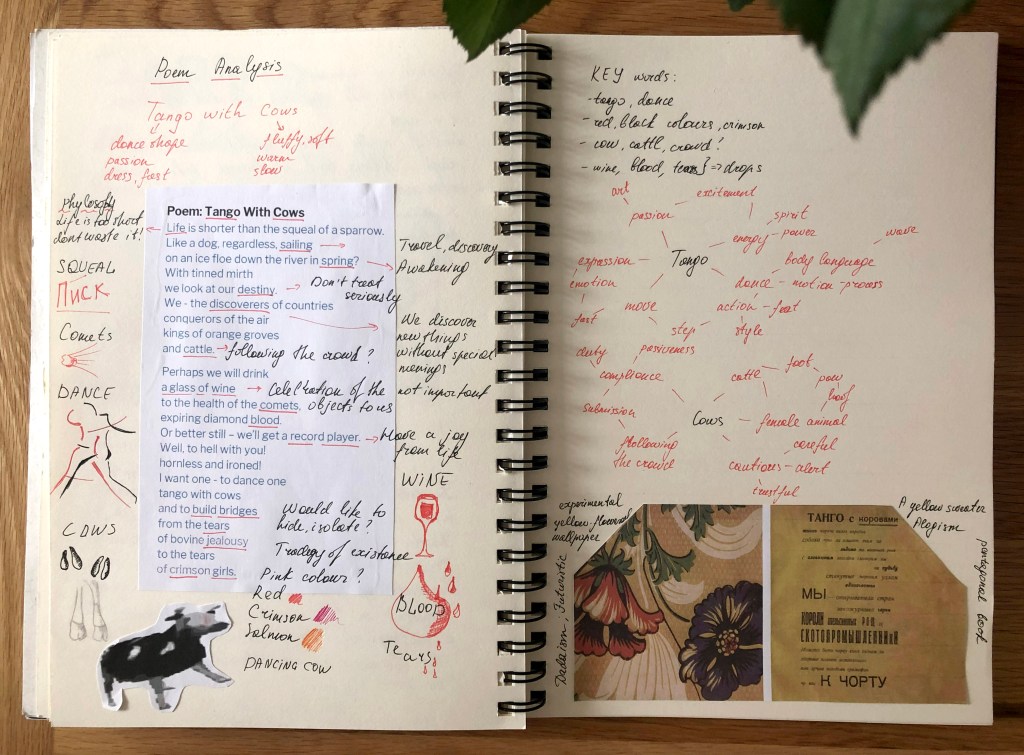 Poem Analysis
Tango with Cows
dance shape
passion
dress, fast
fluffy, soft
warm
slow
phylosofy
Life is too short
dont waste it!
SQUEAL
ПИСК
Comets
DANCE
COWS
Poem: Tango With Cows
Life is shorter than the squeal of a sparrow.
Like a dog, regardless, sailing
on an ice floe down the river in spring?
With tinned mirth
we look at our destiny.
We - the discoverers of countries
conquerors of the air
kings of orange groves
and cattle.
Perhaps we will drink
a glass of wine
to the health of the comets,
expiring diamond blood.
Or better still – we'll get a record player.
Well, to hell with you!
hornless and ironed!
I want one - to dance one
tango with cows
and to build bridges
from the tears
of bovine jealousy
to the tears
of crimson girls.
Travel, discovery
Awakening
Don't treat
seriously
We discover
new things
without special
menings
not important
following the crowd?
Celebration of the
objects to us
Have a joy
from life
WINE
Would like to
hide, isolate?
Tradigy of existance
Pink colour?
Red
Crimson
Salmon
DANCING COW
BLOOD
Tears
KEY words:
- tango, dance
- red, black colours, crimson
- cow, cattle, crowd?
- wine, blood, tears } => drops
art
excitement
passion
spirit
energy - power
wave
expression
Tango
body language
emotion
dance - motion - process
fast
move
action - fast
step
style
duty
passiveness
foot
compliance
cattle
paw
hoof
submission
Cows
female animal
following
the crowd
careful
cautious - alert
trustful
experimental
yellow-flowered
wallpaper
Dadaism; Futuristic
A yellow sweater
Alogism
pentagonal book
ТАНГО с коровами
МЫ
КОРОЛИ апельсиновых РОЩ
СКОТОПРОМЫШЛЕННИКИ
К ЧОРТУ